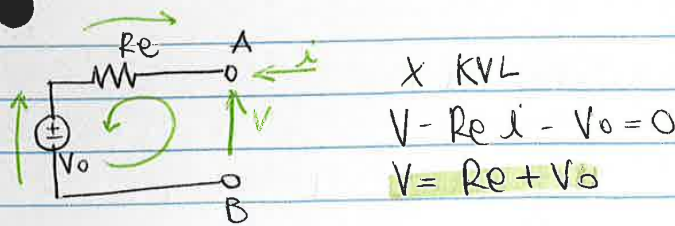 Re
A
i
V
±
Vo
B
x KVL
V - Re i - Vo = 0
V = Re + Vo